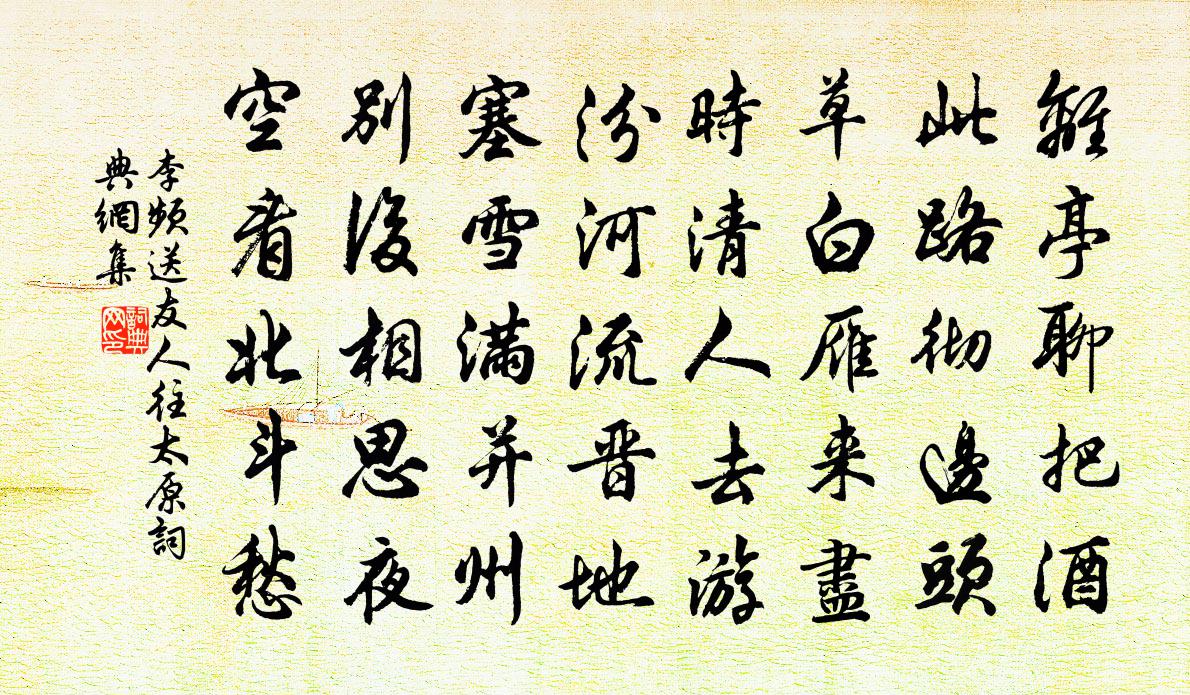 離亭聊把酒
此路徹邊頭
草白雁来盡
時清人去游
汾河流晋地
塞雪满并州
別後相思夜
空看北斗愁
李频送友人往太原詞
典網集
詞典
网印